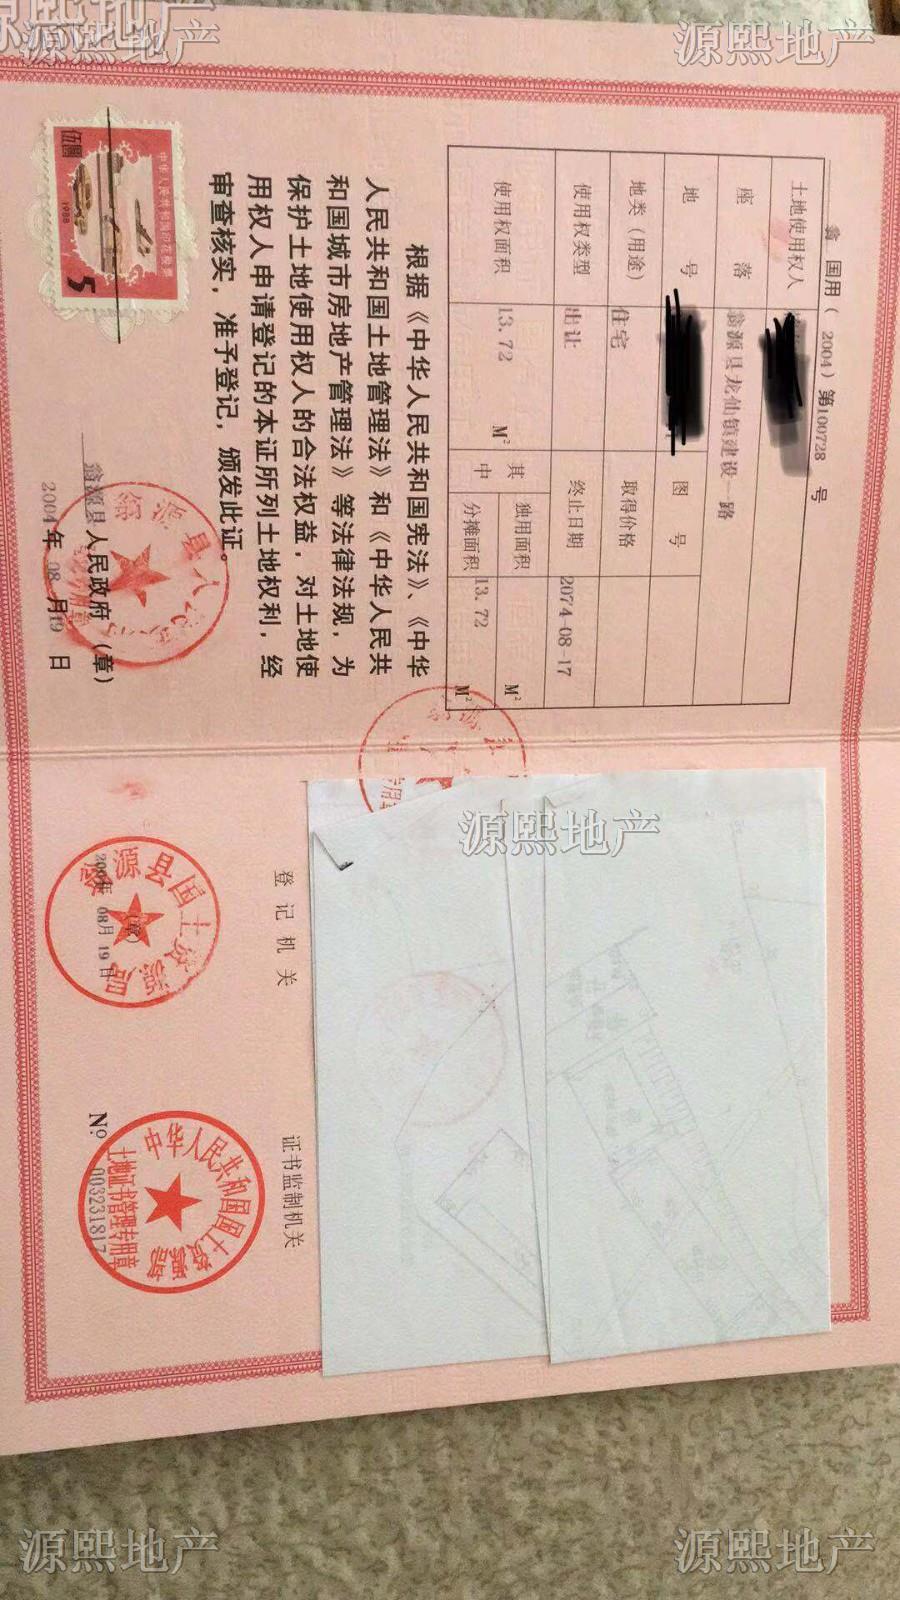 源熙地产
源熙地产
源熙地产
翁 国用（ 2004）第100728 号
土地使用权人
座 落 翁源县龙仙镇建设一路
地 号 图 号
地类（用途） 住宅 取得价格
使用权类型 出让 终止日期 2074-08-17
使用权面积 13.72 M² 其中 独用面积 M²
分摊面积 13.72 M²
根据《中华人民共和国宪法》、《中华
人民共和国土地管理法》和《中华人民共
和国城市房地产管理法》等法律法规，为
保护土地使用权人的合法权益，对土地使
用权人申请登记的本证所列土地权利，经
审查核实，准予登记，颁发此证。
翁源县人民政府（章）
2004年 08 月19 日
中华人民共和国印花税票
伍圆
1988
5
翁源县人民政府
源熙地产
登记机关
翁源县国土资源局
（章）
2004年 08月 19 日
证书监制机关
中华人民共和国国土资源部
土地证书管理专用章
№ 003231817
源熙地产
源熙地产